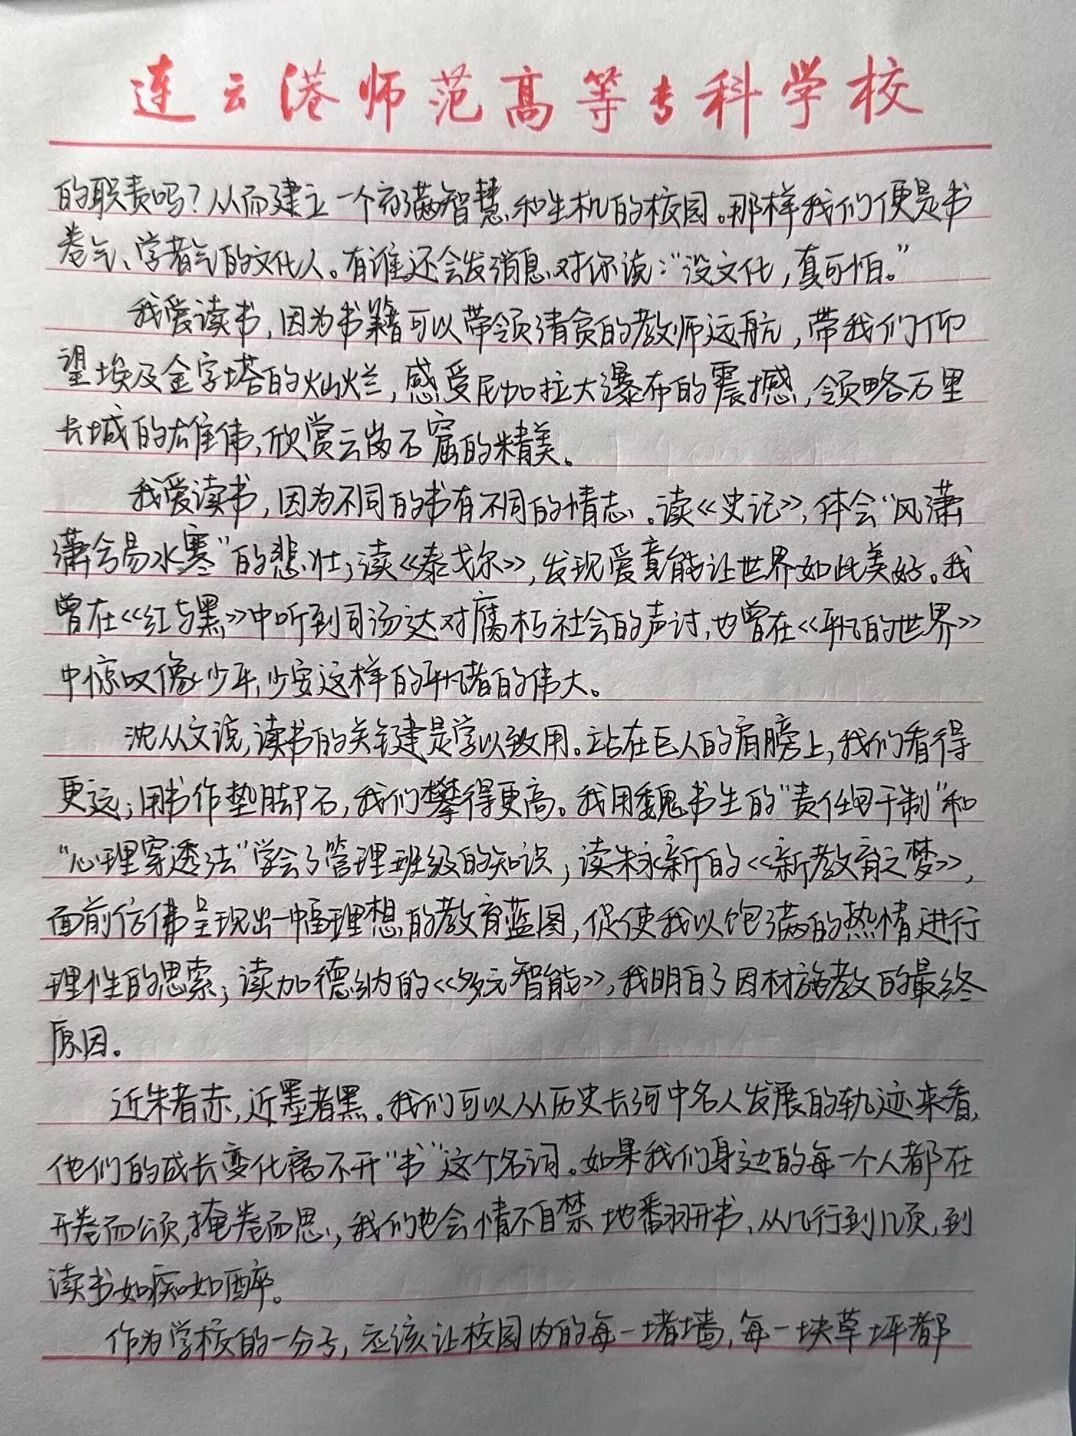 连云港师范高等专科学校
的职责吗？从而建立一个充满智慧和生机的校园。那样我们便是书
卷气、学者气的文化人。有谁还会发消息对你说：“没文化，真可怕。”
我爱读书，因为书籍可以带领清贫的教师远航，带我们仰
望埃及金字塔的灿烂，感受尼加拉大瀑布的震撼，领略万里
长城的雄伟，欣赏云岗石窟的精美。
我爱读书，因为不同的书有不同的情志。读《史记》，体会“风潇
潇兮易水寒”的悲壮；读《泰戈尔》，发现爱竟能让世界如此美好。我
曾在《红与黑》中听到司汤达对腐朽社会的声讨，也曾在《平凡的世界》
中惊叹像少平、少安这样的平凡者的伟大。
沈从文说，读书的关键是学以致用。站在巨人的肩膀上，我们看得
更远；用书作垫脚石，我们攀得更高。我用魏书生的“责任田干制”和
“心理穿透法”学会了管理班级的知识；读朱永新的《新教育之梦》，
面前仿佛呈现出一幅理想的教育蓝图，促使我以饱满的热情进行
理性的思索；读加德纳的《多元智能》，我明白了因材施教的最终
原因。
近朱者赤，近墨者黑。我们可以从历史长河中名人发展的轨迹来看，
他们的成长变化离不开“书”这个名词。如果我们身边的每一个人都在
开卷而颂，掩卷而思，我们也会情不自禁地翻开书，从几行到几页，到
读书如痴如醉。
作为学校的一分子，应该让校园内的每一堵墙，每一块草坪都